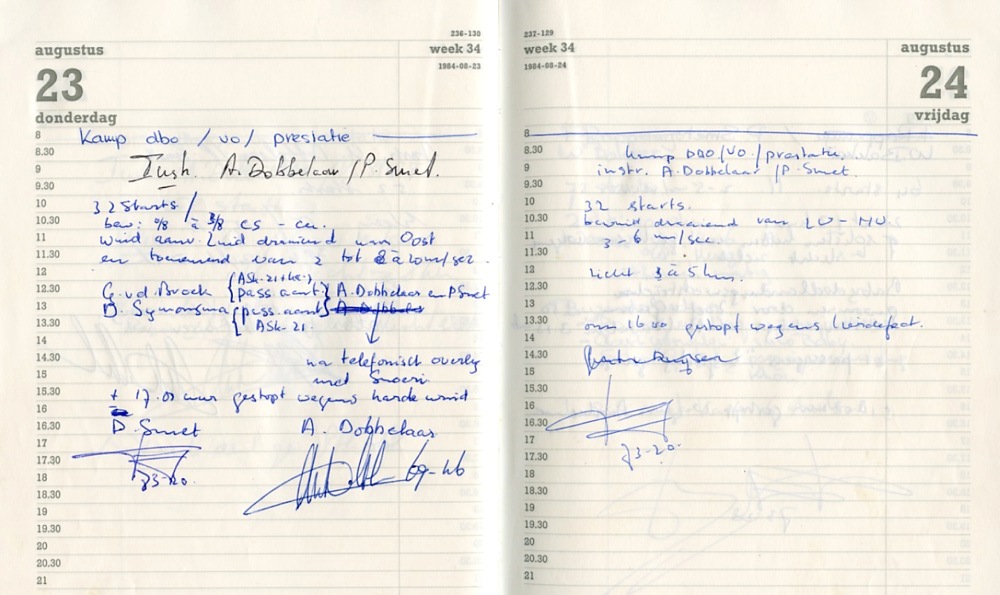 236-130
augustus
week 34
1984-08-23
23
donderdag
8
Kamp dbo / vo / prestatie
8.30
Instr. A. Dobbelaar / P. Smet.
9
9.30
10
32 Starts
10.30
bew: 0/8 à 3/8 cs - cu.
11
wind aanv. Zuid draaiend van Oost
11.30
en toenemend van 2 tot 8 à 10 m/sec.
12
(ASK-21+ka.)
12.30
G. v.d. Broek {pass aant} A. Dobbelaar en P Smet
13
D. Symonsma {pass. aant}
13.30
ASK-21.
14
na telefonisch overleg
14.30
met
15
15.30
± 17.00 uur gestopt wegens harde wind
16
16.30
P. Smet A. Dobbelaar
17
17.30
73-20. 69-46
18
18.30
19
19.30
20
20.30
21
237-129
week 34
augustus
1984-08-24
24
vrijdag
8
8.30
Kamp DBO/VO/prestatie
9
instr. A. Dobbelaar / P. Smet.
9.30
10
32 starts.
10.30
draaiend van ZW-NW.
11
3-6 m/sec
11.30
12
zicht 3 à 5 km.
12.30
13
13.30
om 16 00 gestopt wegens lierdefect.
14
14.30
15
15.30
16
16.30
17
73-20.
17.30
18
18.30
19
19.30
20
20.30
21